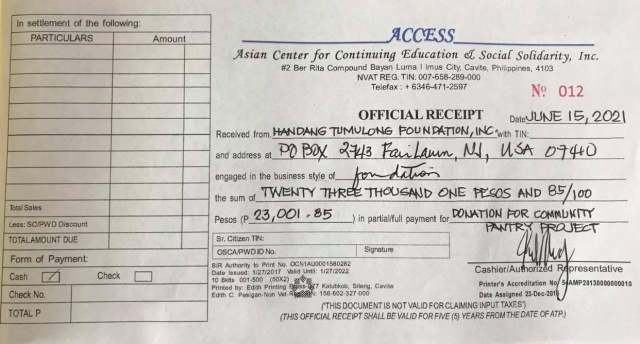 In settlement of the following:
PARTICULARS Amount
Total Sales
Less: SC/PWD Discount
TOTAL AMOUNT DUE
Form of Payment:
Cash Check
Check No.
TOTAL P
ACCESS
Asian Center for Continuing Education & Social Solidarity, Inc.
#2 Ber Rita Compound Bayan Luma I Imus City, Cavite, Philippines, 4103
NVAT REG. TIN: 007-658-289-000
Telefax : + 6346-471-2597
Nº 012
OFFICIAL RECEIPT Date JUNE 15, 2021
Received from HANDANG TUMULONG FOUNDATION, INC. with TIN:
and address at PO BOX 2743 Fair Lawn, NJ, USA 07410
engaged in the business style of foundation
the sum of TWENTY THREE THOUSAND ONE PESOS AND 85/100
Pesos (P 23,001.85 ) in partial/full payment for DONATION FOR COMMUNITY
PANTRY PROJECT
Sr. Citizen TIN:
OSCA/PWD ID No. Signature
Cashier/Authorized Representative
BIR Authority to Print No. OCN1AU0001580282
Date Issued: 1/27/2017 Valid Until: 1/27/2022
10 Bklts 001-500 (50X2)
Printed by: Edith Printing Kalubkob, Silang, Cavite
Edith C. Pesigan-Non Vat 156-602-327-000
Printer's Accreditation No.
Date Assigned 23-Dec-
"THIS DOCUMENT IS NOT VALID FOR CLAIMING INPUT TAXES")
(THIS OFFICIAL RECEIPT SHALL BE VALID FOR FIVE (5) YEARS FROM THE DATE OF ATP.)